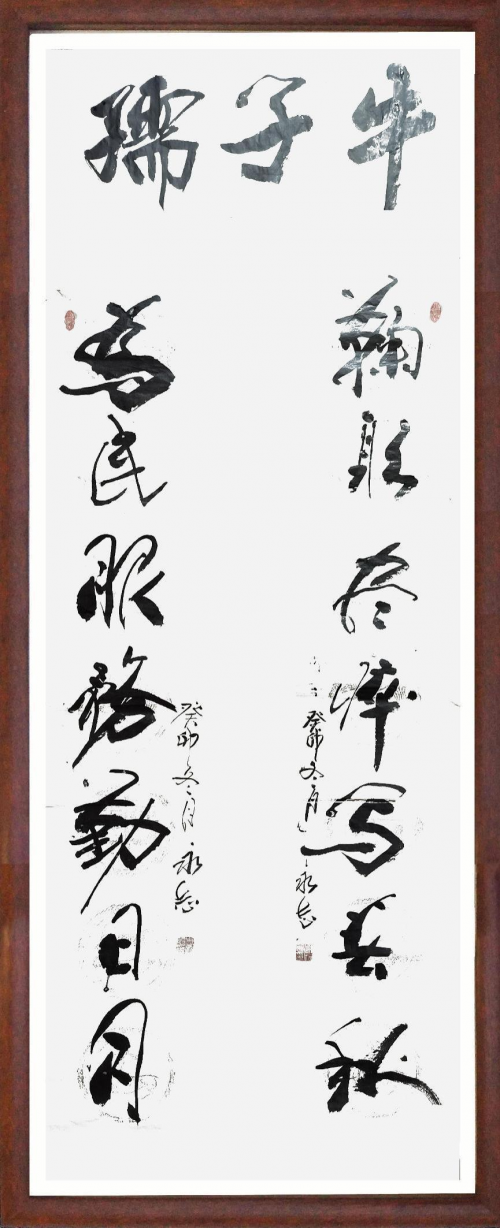 孺子牛
鞠躬尽瘁写春秋
癸卯冬月永志
为民服務勤日月
癸卯冬月永志